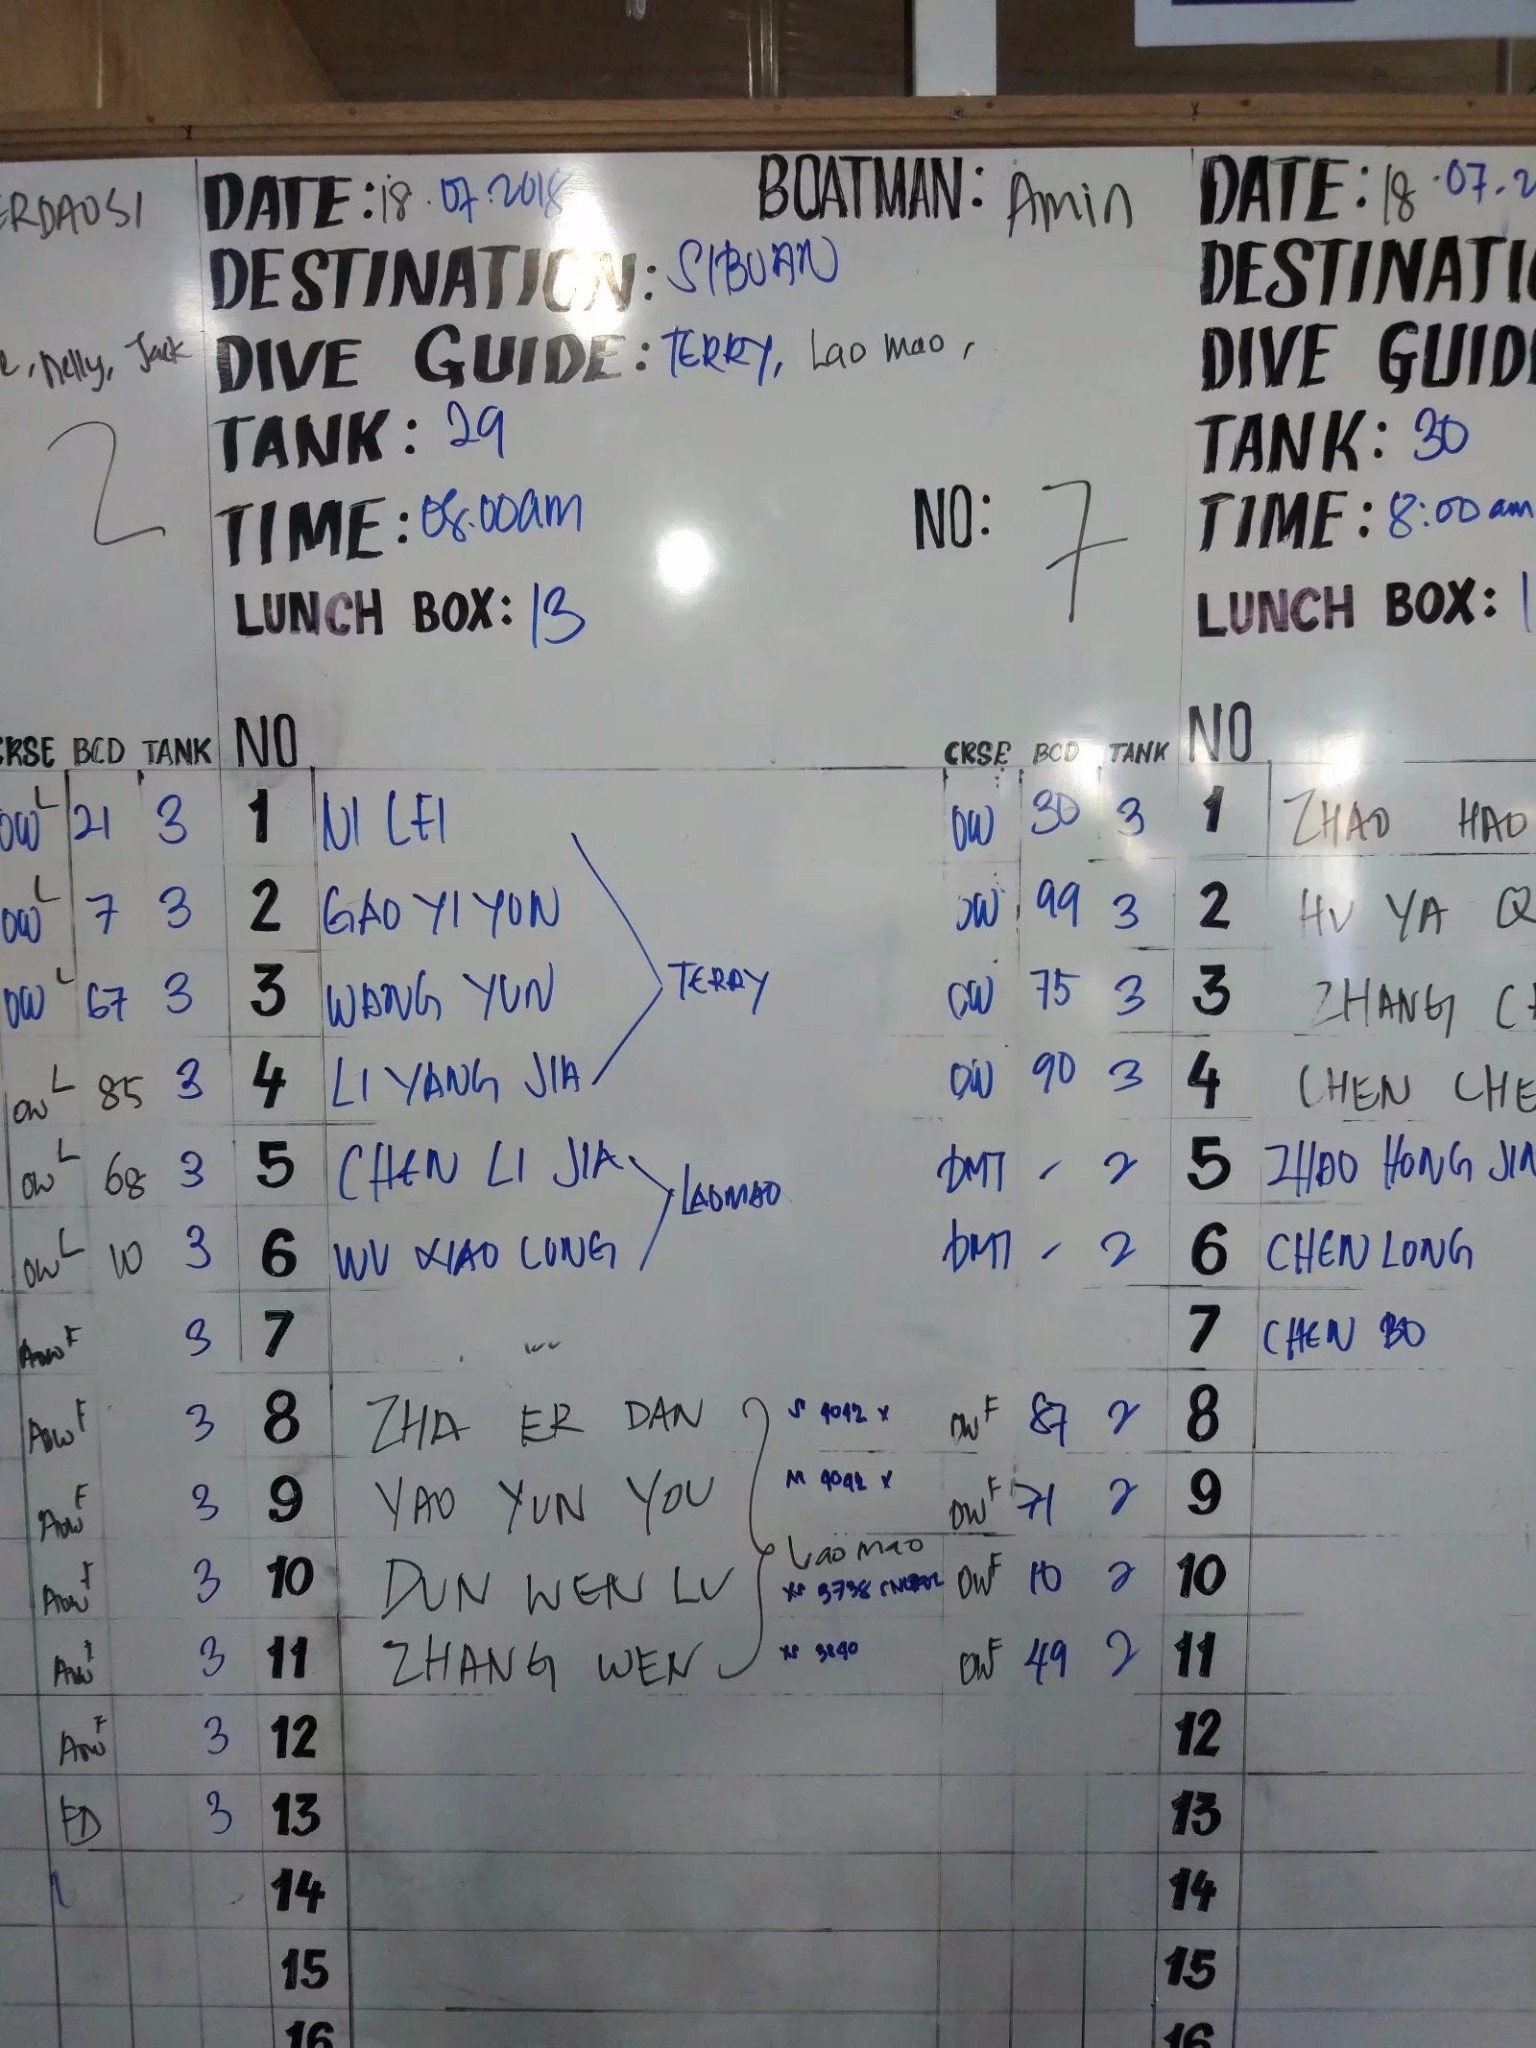 DATE: 18.07.2018 BOATMAN: Amin
DESTINATION: SIBUAN
DIVE GUIDE: TERRY, Lao mao,
TANK: 29
TIME: 08.00am NO: 7
LUNCH BOX: 13
NO CRSE BCD TANK
1 NI LEI OW 30 3
2 GAO YI YUN OW 99 3
3 WANG YUN TERRY OW 75 3
4 LI YANG JIA OW 90 3
5 CHEN LI JIA LAOMAO DMT - 2
6 WU XIAO LONG DMT - 2
7
8 ZHA ER DAN S 4042 x OW F 87 2
9 YAO YUN YOU M 4042 x OW F 71 2
Lao mao
10 DUN WEN LU XS 3738 OW F 10 2
11 ZHANG WEN XS 3840 OW F 49 2
12
13
14
15
16
ERDAOSI
, Nelly, Jack
2
CRSE BCD TANK
OW L 21 3
OW L 7 3
OW L 67 3
OW L 85 3
OW L 68 3
OW L 10 3
AOW F 3
AOW F 3
AOW F 3
AOW F 3
AOW F 3
AOW F 3
ED 3
DATE: 18.07.2
DESTINATI
DIVE GUID
TANK: 30
TIME: 8:00am
LUNCH BOX: 1
NO
1 ZHAO HAO
2 HU YA Q
3 ZHANG C
4 CHEN CHE
5 ZHAO HONG JIN
6 CHEN LONG
7 CHEN BO
8
9
10
11
12
13
14
15
16